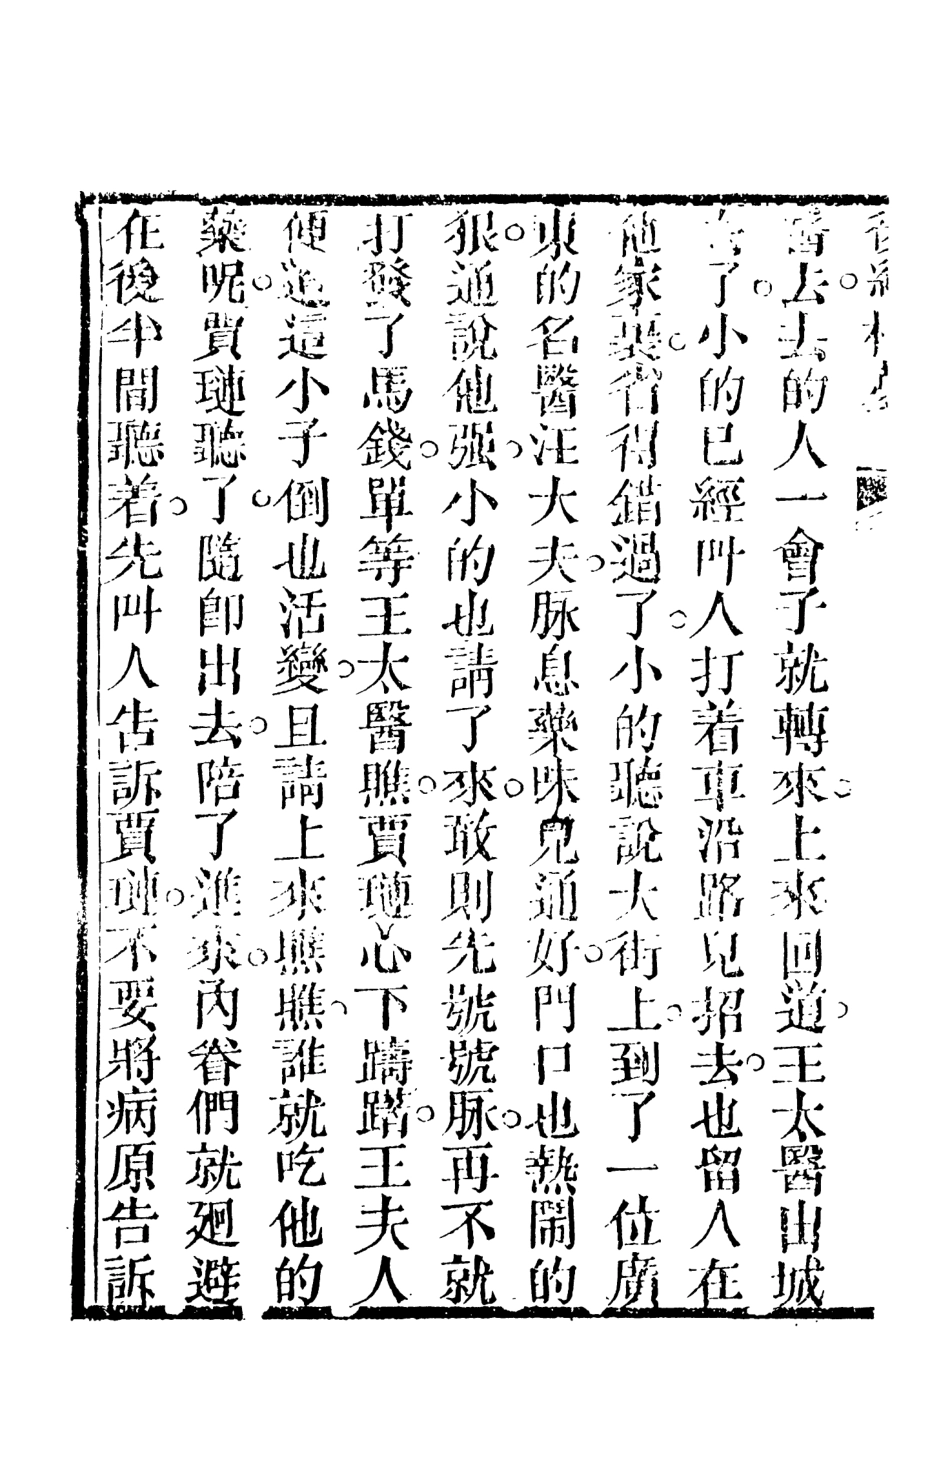 後紅樓夢
醫去去的人一會子就轉來上來回道王太醫出城
去了小的已經叫人打着車沿路兒招去也留人在
他家葉省得錯過了小的聽說大街上到了一位廣
東的名醫汪大夫脉息藥味兒通好門口也熱鬧的
狠通說他强小的也請了來敢則先號號脉再不就
打發了馬錢單等王太醫瞧賈璉心下躊躇王夫人
便道這小子倒也活變且請上來瞧瞧誰就吃他的
藥呢賈璉聽了隨卽出去陪了進來內眷們就廻避
在後半間聽着先叫人告訴賈璉不要將病原告訴